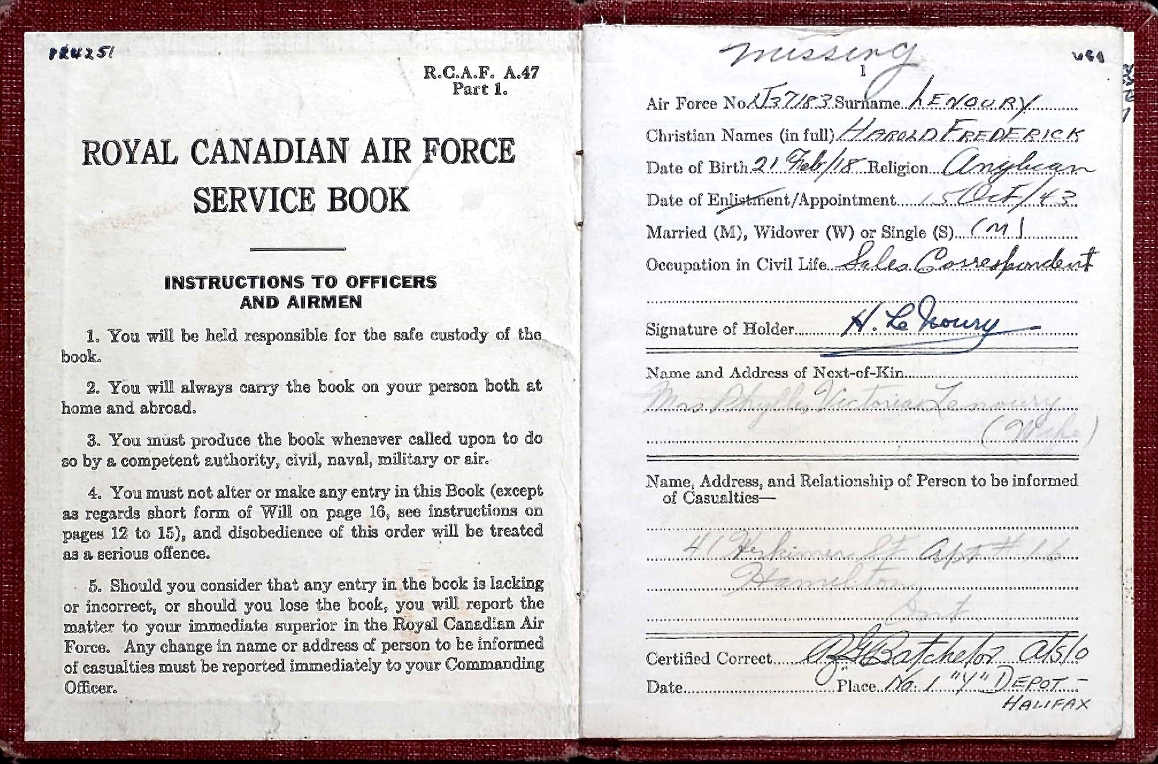 R.C.A.F. A.47
Part 1.
ROYAL CANADIAN AIR FORCE
SERVICE BOOK
INSTRUCTIONS TO OFFICERS
AND AIRMEN
1. You will be held responsible for the safe custody of the
book.
2. You will always carry the book on your person both at
home and abroad.
3. You must produce the book whenever called upon to do
so by a competent authority, civil, naval, military or air.
4. You must not alter or make any entry in this Book (except
as regards short form of Will on page 16, see instructions on
pages 12 to 15), and disobedience of this order will be treated
as a serious offence.
5. Should you consider that any entry in the book is lacking
or incorrect, or should you lose the book, you will report the
matter to your immediate superior in the Royal Canadian Air
Force. Any change in name or address of person to be informed
of casualties must be reported immediately to your Commanding
Officer.
missing
1
Air Force No. J37183 Surname LENOURY
Christian Names (in full) HAROLD FREDERICK
Date of Birth 21 Feb/18 Religion Anglican
Date of Enlistment/Appointment 15 Oct/43
Married (M), Widower (W) or Single (S) (M)
Occupation in Civil Life Sales Correspondent
Signature of Holder H. LeNoury
Name and Address of Next-of-Kin
Mrs Phyllis Victoria Lenoury
(Wife)
Name, Address, and Relationship of Person to be informed
of Casualties—
41 Herkimer St Apt # 16
Hamilton
Ont
Certified Correct Batchelor A/S/O
Date Place No. 1 "Y" DEPOT -
HALIFAX